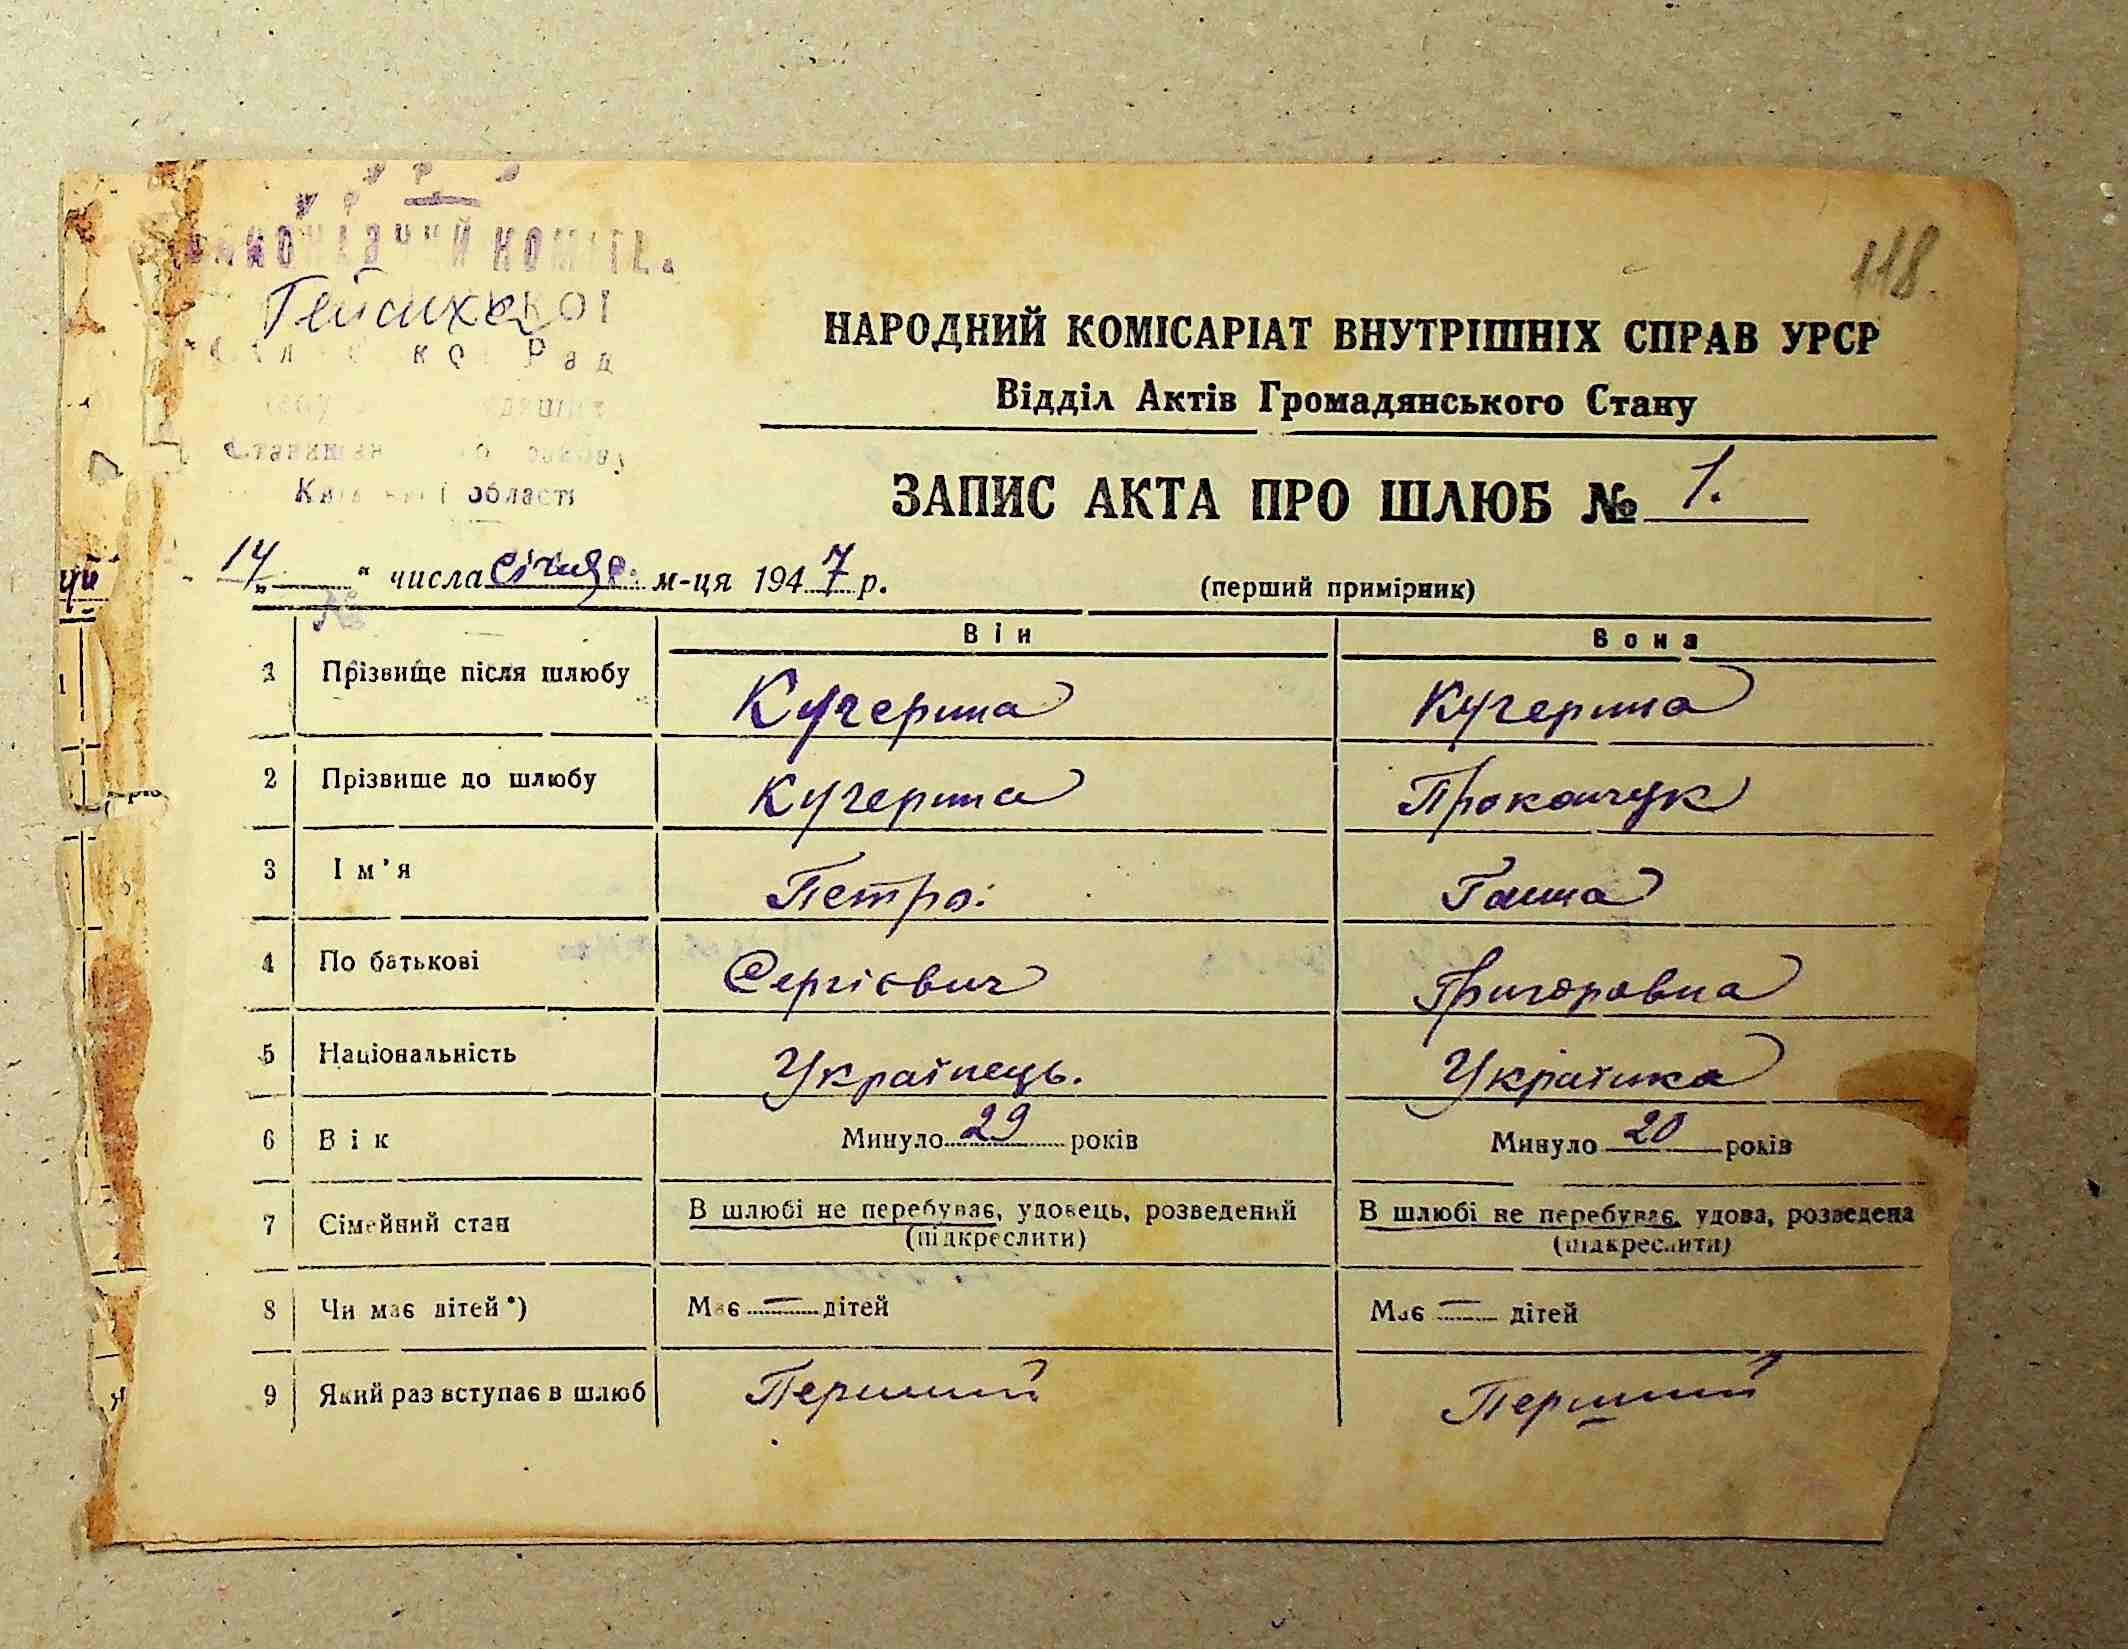 118
Гейсихс
Київ області
НАРОДНИЙ КОМІСАРІАТ ВНУТРІШНІХ СПРАВ УРСР
Відділ Актів Громадянського Стану
ЗАПИС АКТА ПРО ШЛЮБ № 1.
"14" числа січня м-ця 1947 р. (перший примірник)
Він Вона
1 Прізвище після шлюбу Кучерина Кучерина
2 Прізвище до шлюбу Кучерина Прокопчук
3 Ім'я Петро. Ганна
4 По батькові Сергієвич Григоровна
5 Національність Українець. Українка
6 Вік Минуло 29 років Минуло 20 років
7 Сімейний стан В шлюбі не перебуває, удовець, розведений В шлюбі не перебуває, удова, розведена
(підкреслити) (підкреслити)
8 Чи має дітей*) Має — дітей Має — дітей
9 Який раз вступає в шлюб Перший Перший